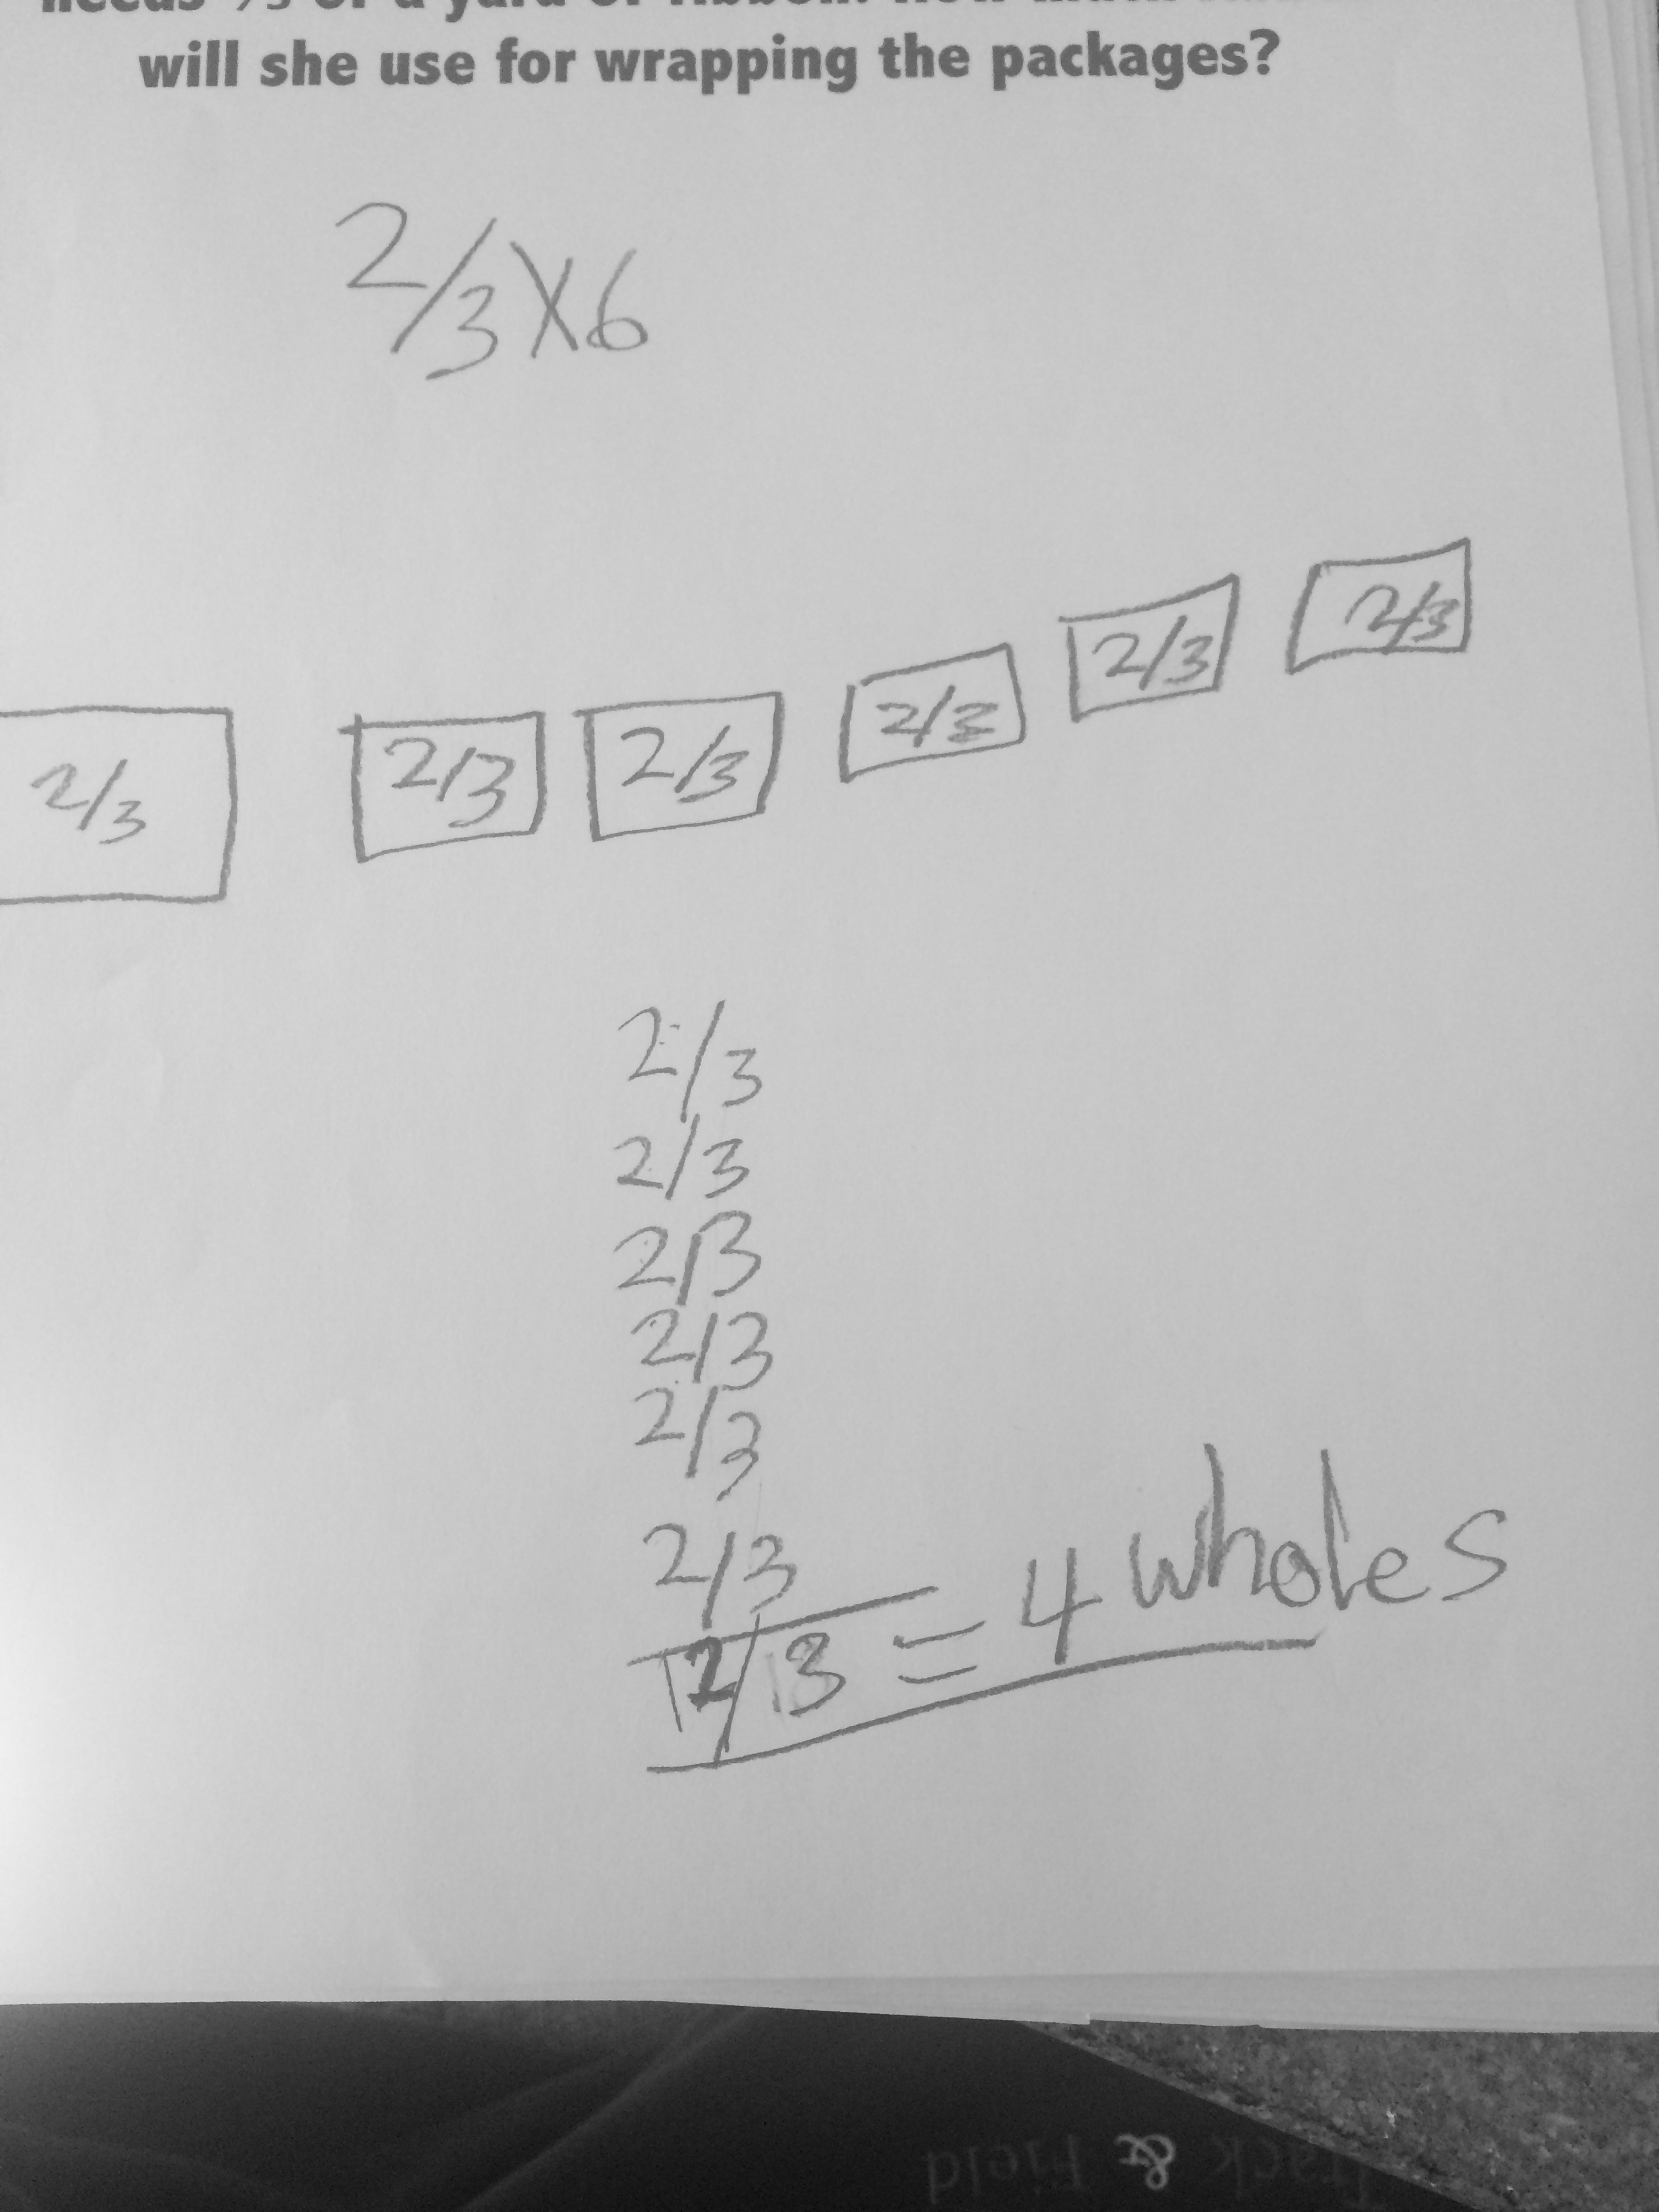 of a yard of ribbon. How much
will she use for wrapping the packages?
2/3 X 6
2/3 2/3 2/3 2/3 2/3 2/3
2/3
2/3
2/3
2/3
2/3
2/3
12/3 = 4 wholes
& Field